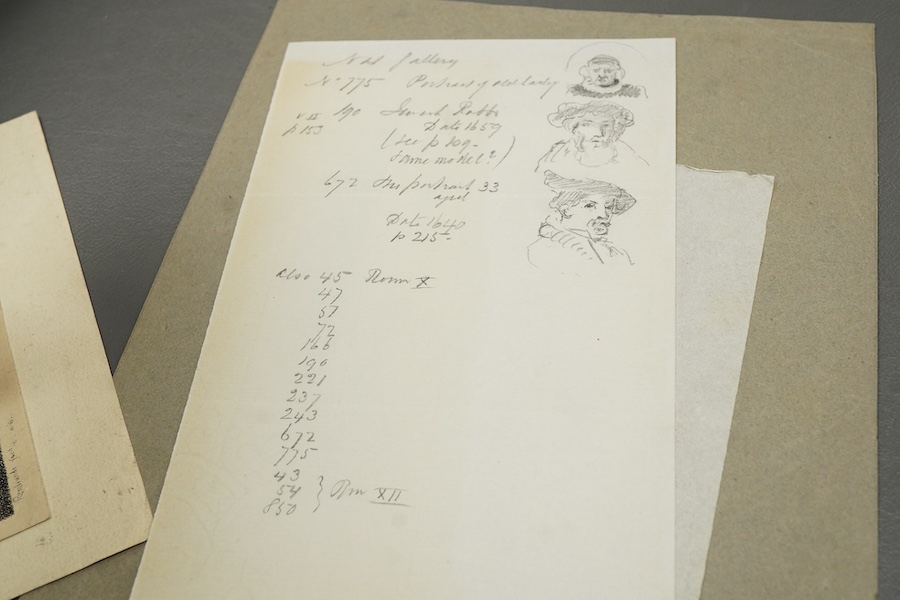 Nat Gallery
No 775 Portrait of old Lady
V II p 153
190 Jewish Rabbi
Date 1659
(see p 109-
same model?)
672 His portrait 33
aged
Date 1640
p 215-
also 45 Room X
47
51
72
166
190
221
237
243
672
775
43
54 } Rm XII
850